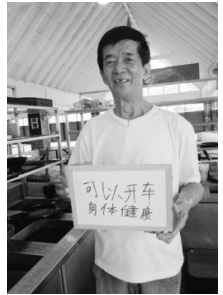 可以开车
身体健康